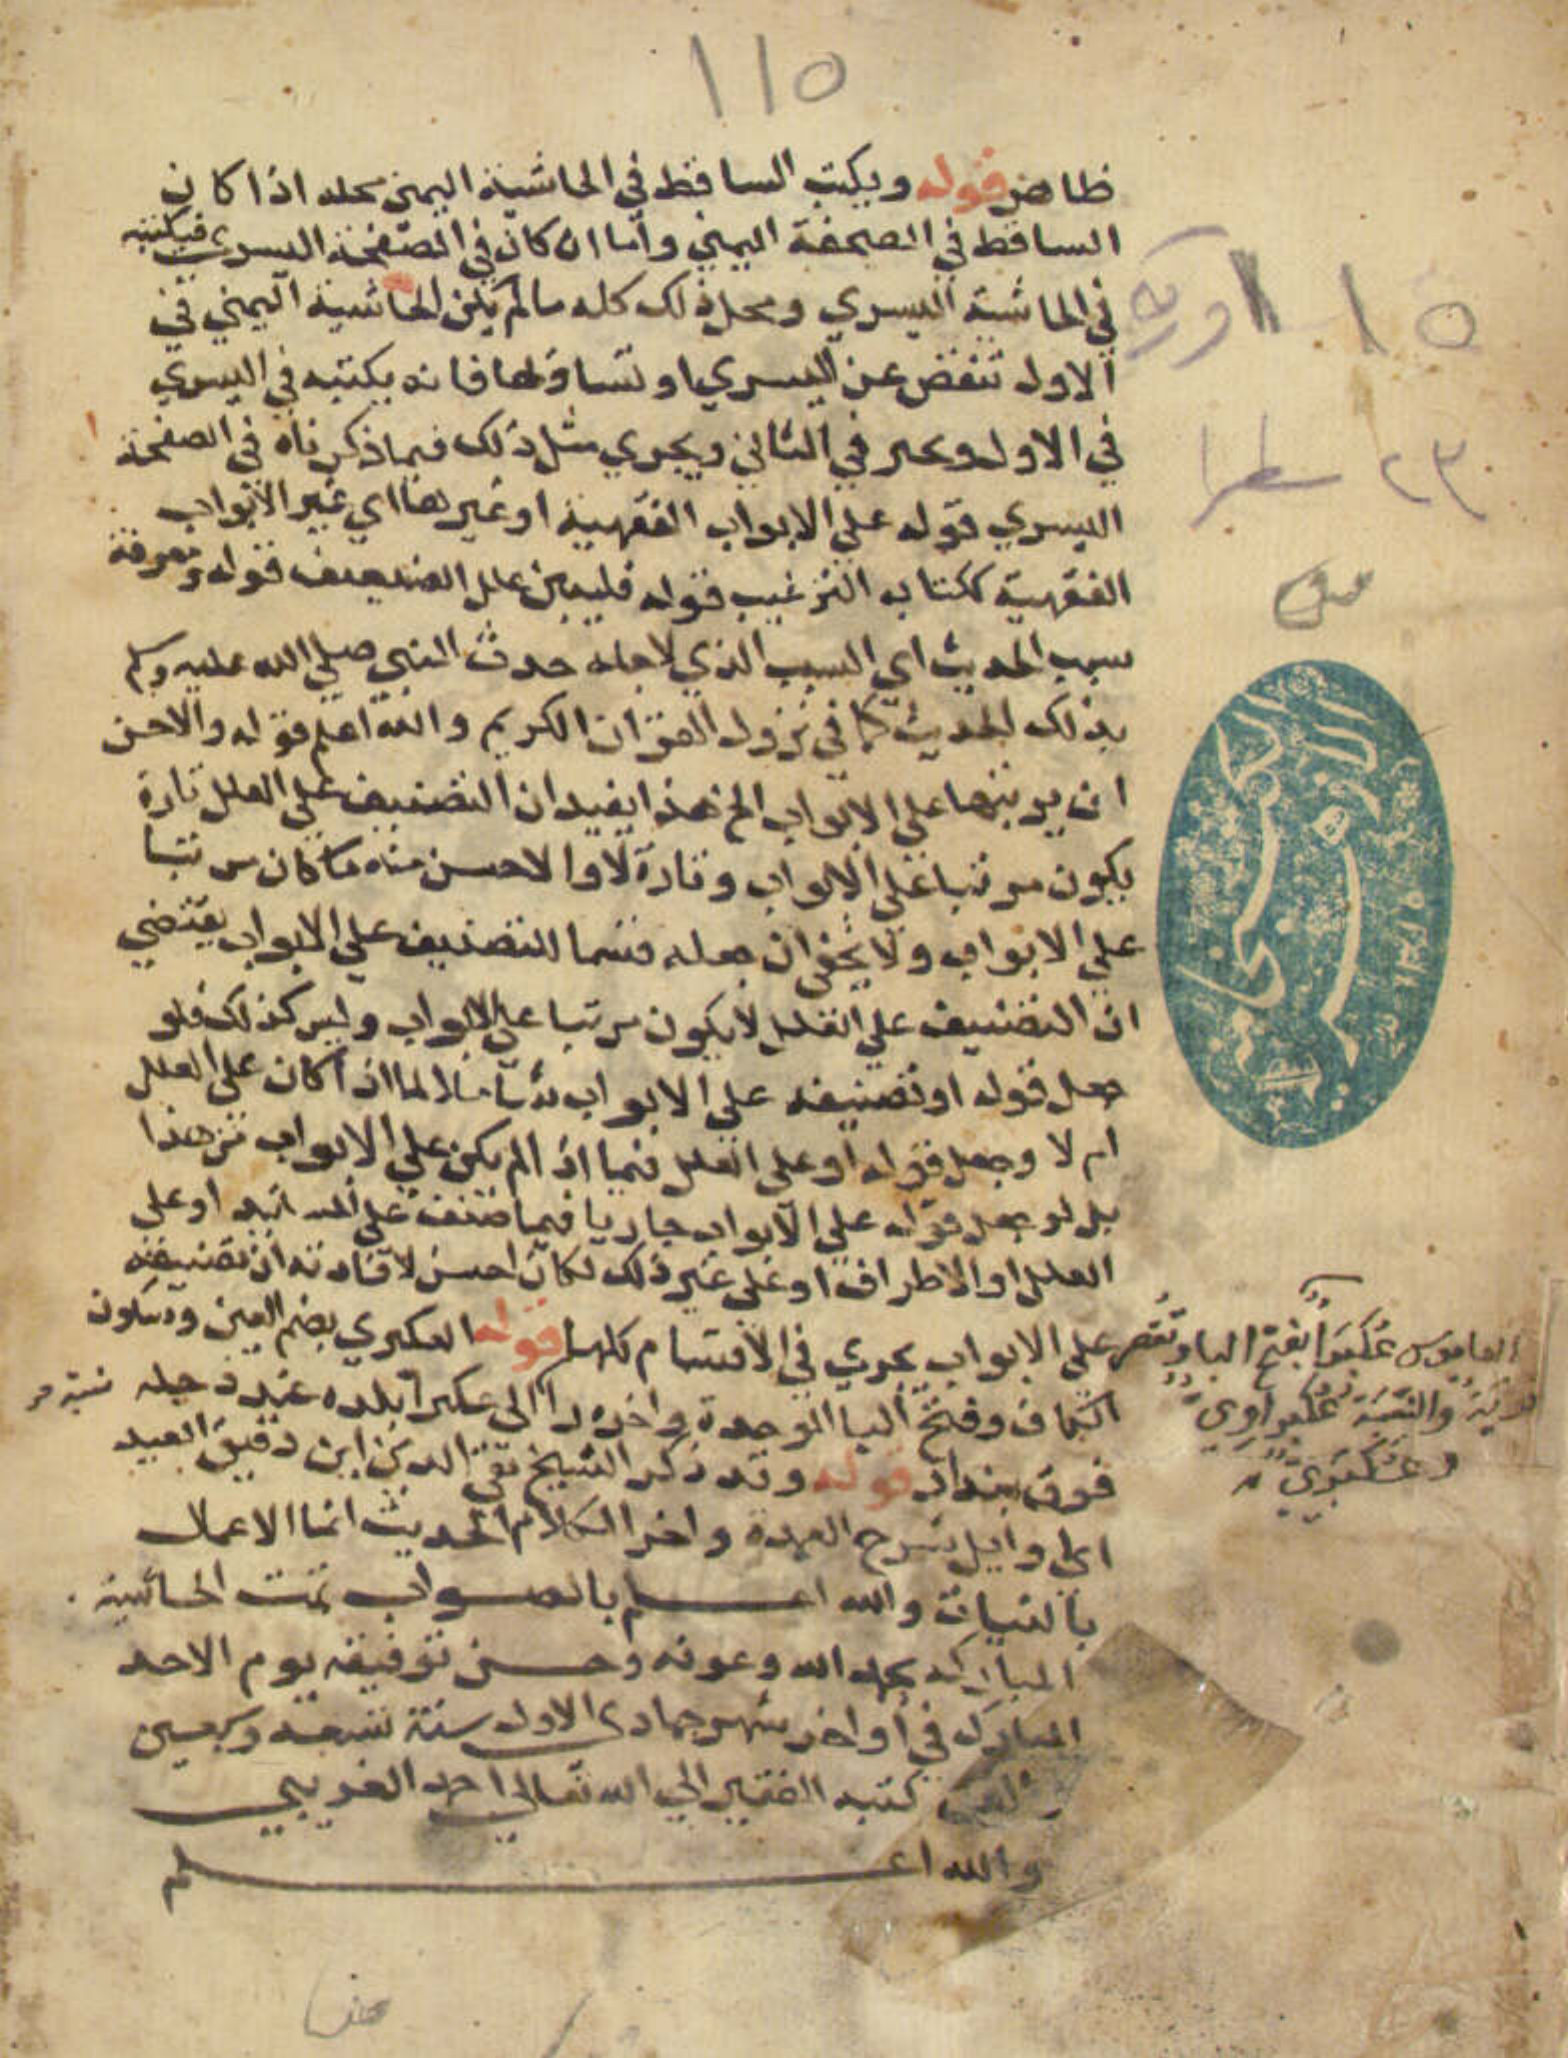 ١١٥
ظاهر قوله ويكتب الساقط في الحاشية اليمنى محله اذا كان
الساقط في الصحفة اليمني واما ان كان في الصفحة اليسري فيكتبه
في الحاشية اليسري ومحل ذلك كله مالم يكن الحاشية اليمني في
الاول تنقص عن اليسري او تساويها فانه يكتبه في اليسري
في الاول ويخير في الثاني ويجري مثل ذلك فيما ذكرناه في الصفحة
اليسري قوله علي الابواب الفقهية او غيرها اي غير الابواب
الفقهية ككتاب الترغيب قوله فليبين علل الضعيف قوله ومعرفة
سبب الحديث اي السبب الذي لاجله حدث النبي صلي الله عليه وسلم
بذلك الحديث كما في نزول القران الكريم والله اعلم قوله والاحسن
ان يرتبها علي الابواب الخ هذا يفيد ان التصنيف علي العلل تارة
يكون مرتبا علي الابواب وتارة لا والاحسن منه ما كان مرتبا
علي الابواب ولا يخفي ان جعله قسما للتصنيف علي الابواب يقتضي
ان التصنيف علي العلل لا يكون مرتبا علي الابواب وليس كذلك فلو
جعل قوله او تصنيفه علي الابواب شاملا لما اذا كان علي العلل
ام لا وجعل قوله او علي العلل فيما اذا لم يكن علي الابواب تم هذا
بل لو جعل قوله علي الابواب جاريا فيما صنف علي المسانيد او علي
العلل او الاطراف او علي غير ذلك لكان احسن لافادته ان تصنيفه
علي الابواب يجري في الاقسام كلها قوله العكبري بضم العين وسكون
الكاف وفتح البا الموحدة واخره را الي عكبرا بلده عند دجله
فوق بغداد قوله وقد ذكر الشيخ تقي الدين ابن دقيق العيد
اي اوايل شرح العمدة واخر الكلام الحديث انما الاعمال
بالنيات والله اعلم بالصواب تمت الحاشية
المباركه بحمد الله وعونه وحسن توفيقه يوم الاحد
المبارك في اواخر شهر جمادى الاول سنة تسعه وسبعين
كتبه الفقير الي الله تعالي احمد
والله اعلم
١١٥ ورقة
٢٣ سطرا
القاموس عُكْبَرا بفتح البا وتُقصر
قرية والنسبة عكبراوي
وعُكْبَرِيّ
نسبة